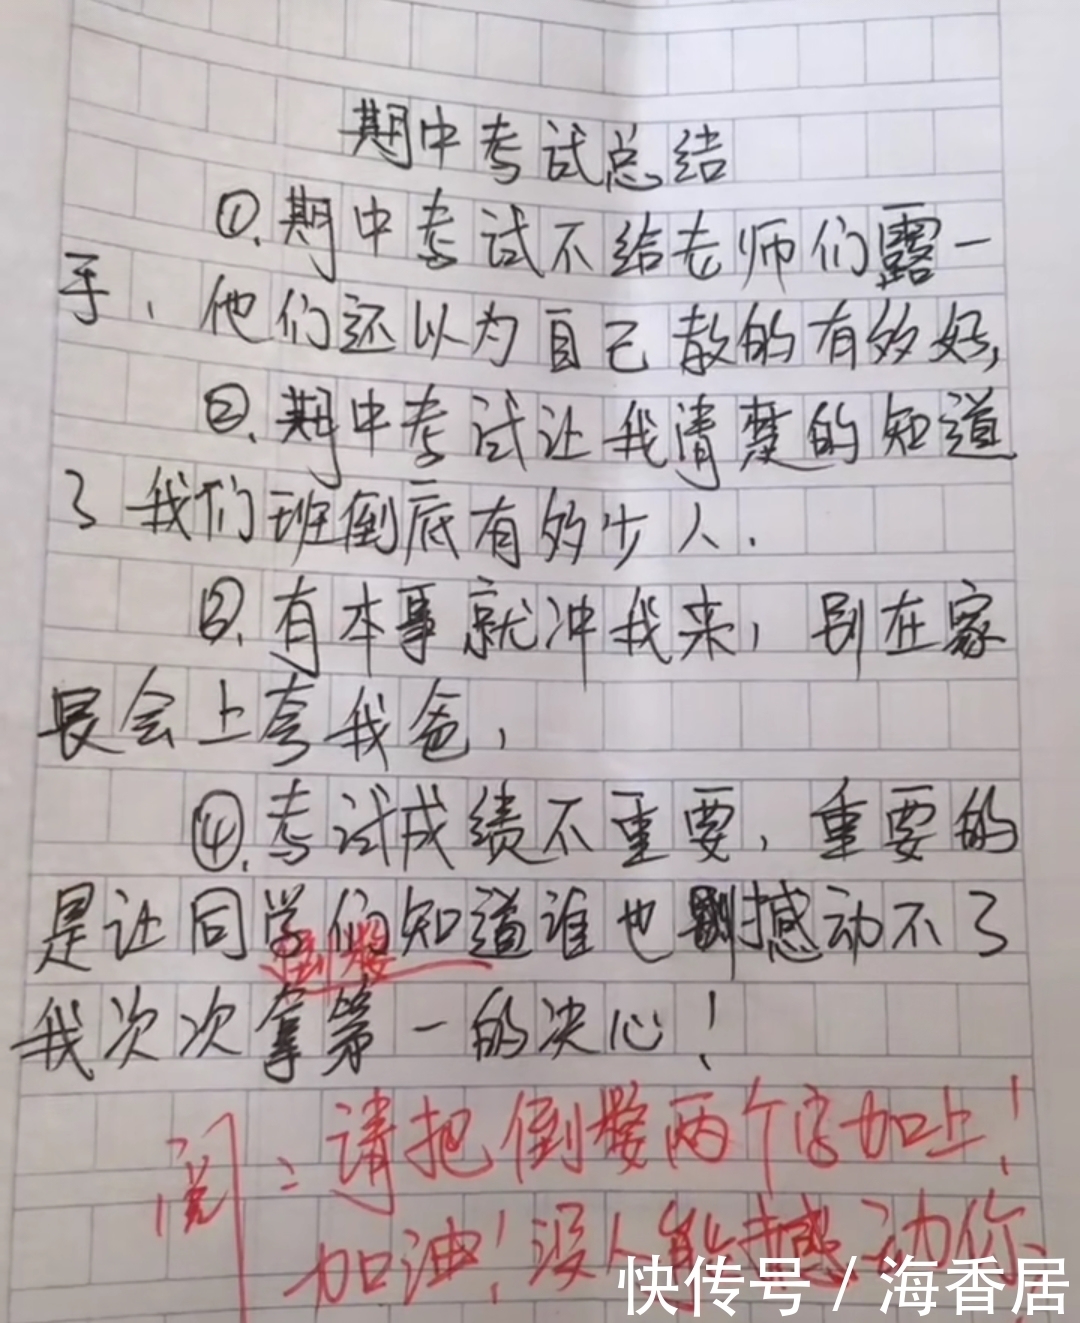 期中考试总结
①.期中考试不给老师们露一
手,他们还以为自己教的有多好,
②.期中考试让我清楚的知道
了我们班倒底有多少人.
③.有本事就冲我来,别在家
长会上夸我爸,
④.考试成绩不重要,重要的
是让同学们知道谁也撼动不了
倒数
我次次拿第一的决心!
阅:请把倒数两个字加上!
加油!没人能撼动你
快传号 / 海香居